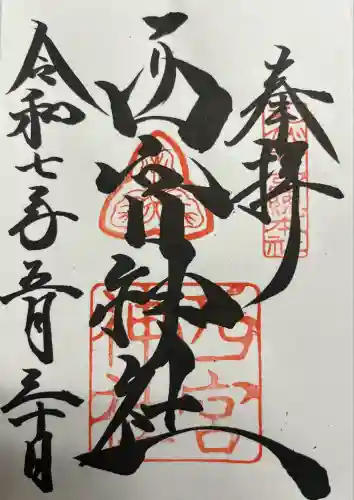 奉拝
西宮神社
令和七年五月三十日
西宮
神社